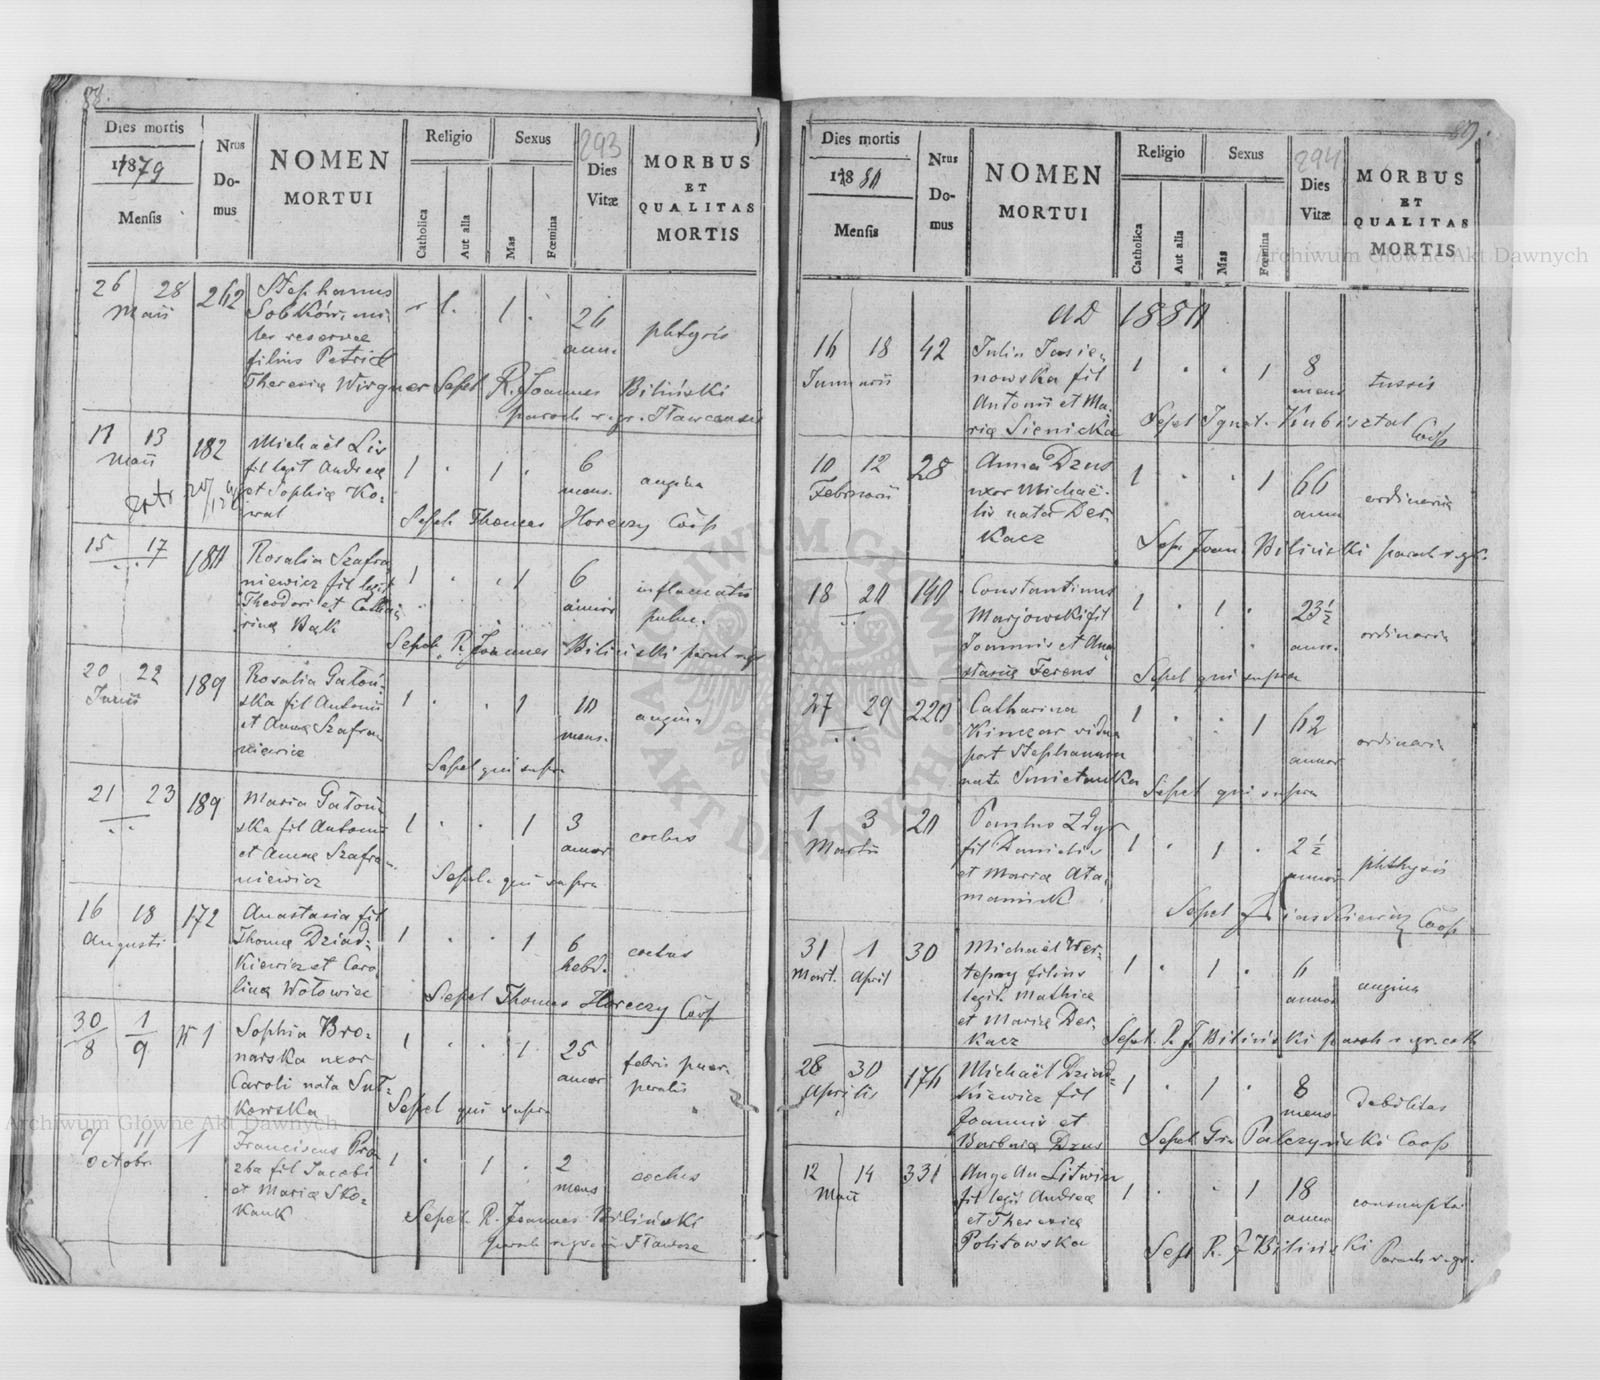 88.
Dies mortis
1879
Mensis
Nrus
Do-
mus
NOMEN
MORTUI
Religio
Catholica
Aut alia
Sexus
Mas
Fœmina
293
Dies
Vitæ
MORBUS
ET
QUALITAS
MORTIS
26 28
Maii
262
Stephanus
Sobków, mi-
les reservae
filius Petri et
Theresia Wirgner
1. 1
26
ann.
phtysis
Sepel R. Joannes Biliński
paroch r. gr. Iławczensis
11 13
Maii
182
Michaël Lis
fil legit Andreæ
et Sophiæ Ko-
wal
1 1
6
mens.
angina
Sepel. Thomas Horeczy Coop
15 17
180
Rosalia Szafra-
niewicz fil legit
Theodori et Catha-
rinæ Bąk
1 1
6
annor
inflamatio
pulm.
Sepel. R. Joannes Biliński paroch r. gr
20 22
Junii
189
Rosalia Gatoń-
ska fil Antonii
et Annæ Szafra-
niewicz
1 1
10
mens.
angina
Sepel qui supra
21 23
189
Maria Gatoń-
ska fil Antonii
et Annæ Szafra-
niewicz
1 1
3
annor
coctus
Sepel. qui supra
16 18
Augusti
172
Anastasia fil
Thomæ Dziad-
kiewicz et Caro-
linæ Wołowiec
1 1
6
hebd.
coctus
Sepel Thomas Horeczy Coop
30/8 1/9
1
Sophia Bro-
narska uxor
Caroli nata Sut-
kowska
1 1
25
annor
febris puer-
peralis
Sepel qui supra
9 11
Octobr
1
Franciscus Pro-
zba fil Jacobi
et Mariæ Sko-
kauk
1 1
2
mens
coctus
Sepel. R. Joannes Biliński
89.
Dies mortis
1880
Mensis
Nrus
Do-
mus
NOMEN
MORTUI
Religio
Catholica
Aut alia
Sexus
Mas
Fœmina
294
Dies
Vitæ
MORBUS
ET
QUALITAS
MORTIS
AD 1880
16 18
Januarii
42
Julia Jasie-
nowska fil
Antonii et Ma-
riæ Sienicka
1 1
8
mens
tussis
Sepel Ignat. Kubisztal Coop
10 12
Februarii
28
Anna Dzus
uxor Michaë-
lis nata Der-
kacz
1 1
66
ann
ordinaria
Sepel Joan Biliński paroch r. gr.
18 20
190
Constantinus
Marjowski fil
Joannis et Ana-
stasiæ Ferens
1 1
23 1/2
ann.
ordinaria
Sepel qui supra
27 29
220
Catharina
Kinczar vidua
post Stephanum
nata Smietanka
1 1
62
annor
ordinaria
Sepel qui supra
1 3
Martii
20
Paulus Zdyr
fil Danielis
et Mariæ Ata-
maniuk
1 1
2 1/2
annor
phthysis
Sepel Coop
31 1
Mart. April
30
Michaël Wer-
tepny filius
legit. Mathiæ
et Mariæ Der-
kacz
1 1
6
annor
angina
Sepel. R. J. Biliński paroch r. gr. cath
28 30
Aprilis
176
Michaël Dziad-
kiewicz fil
Joannis et
Barbaræ Dzus
1 1
8
mens
debilitas
Sepel. Gr. Palczyński Coop
12 14
Maii
331
Angela Litwin
fil legit Andreæ
et Theresiæ
Politowska
1 1
18
annor
consumptio
Sepel R. J Biliński Paroch r. gr.
Archiwum Główne Akt Dawnych
Archiwum Główne Akt Dawnych
ARCHIWUM GŁÓWNE AKT DAWNYCH